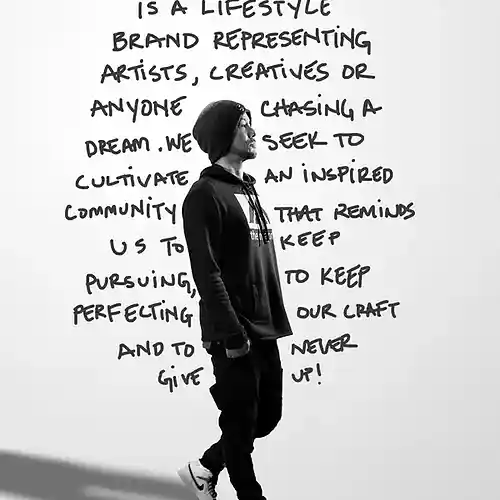 IS A LIFESTYLE
BRAND REPRESENTING
ARTISTS, CREATIVES OR
ANYONE CHASING A
DREAM. WE SEEK TO
CULTIVATE AN INSPIRED
COMMUNITY THAT REMINDS
US TO KEEP
PURSUING, TO KEEP
PERFECTING OUR CRAFT
AND TO NEVER
GIVE UP!